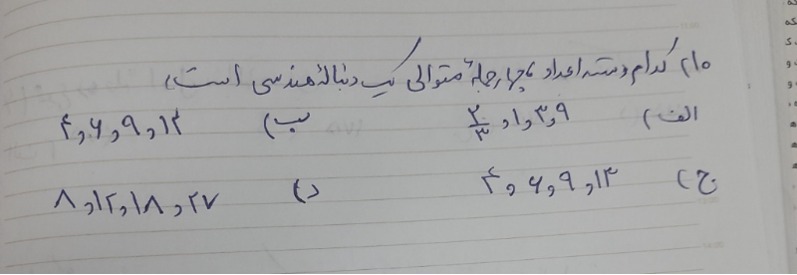 ۲۱۰ کدام دسته اعداد، چهار جملهٔ متوالی یک دنبالهٔ هندسی است،
الف) ۲/۳ و ۱ و ۳ و ۹ ب) ۴ و ۶ و ۹ و ۱۲
ج) ۴ و ۶ و ۹ و ۱۳ د) ۸ و ۱۲ و ۱۸ و ۲۷